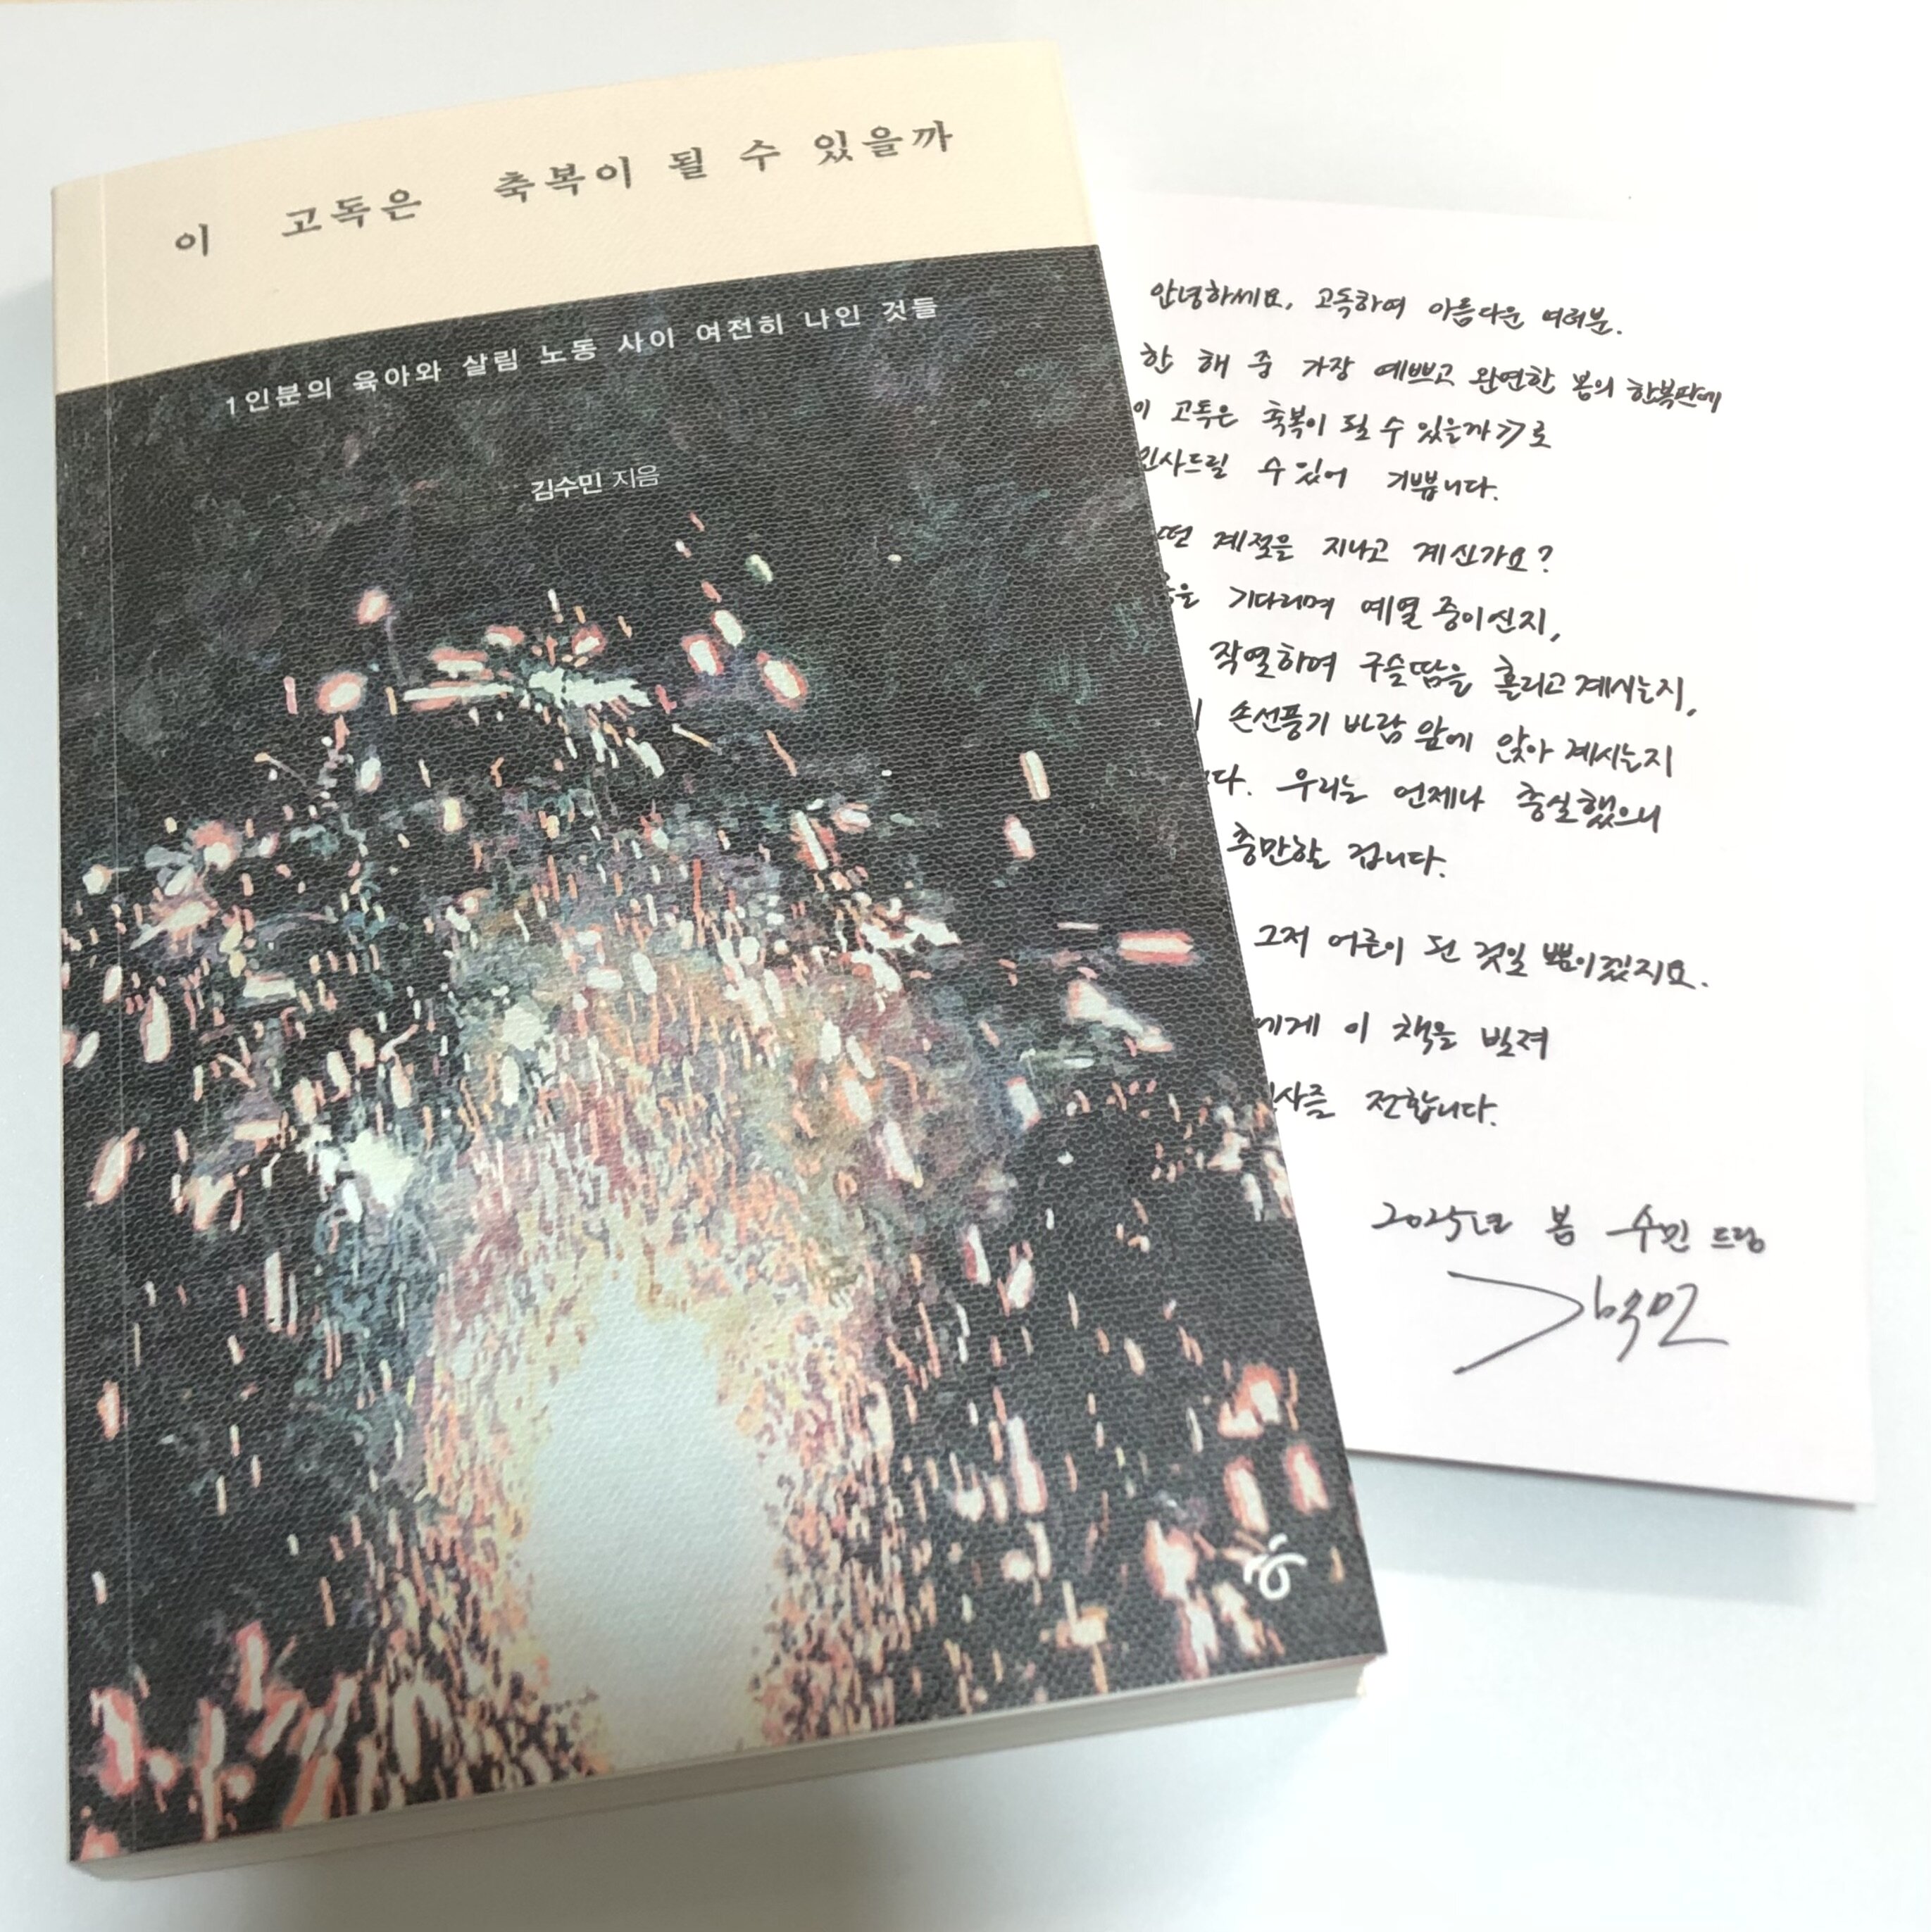 이 고독은 축복이 될 수 있을까
1인분의 육아와 살림 노동 사이 여전히 나인 것들
김수민 지음
안녕하세요, 고독하여 아름다운 여러분.
한 해 중 가장 예쁘고 완연한 봄의 한복판에
이 고독은 축복이 될 수 있을까》로
인사드릴 수 있어 기쁩니다.
떤 계절을 지나고 계신가요?
기다리며 예열 중이신지,
작열하여 구슬땀을 흘리고 계시는지,
손선풍기 바람 앞에 앉아 계시는지
다. 우리는 언제나 충실했으니
충만할 겁니다.
그저 어른이 된 것일 뿐이겠지요.
에게 이 책을 빌려
사를 전합니다.
2025년 봄 수민 드림
김수민